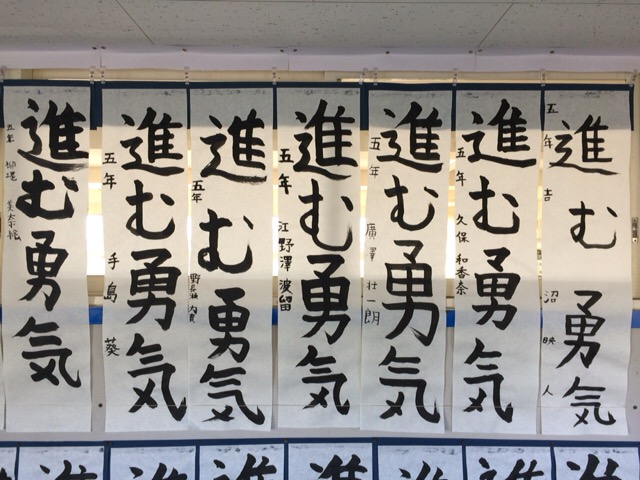 進む勇気
五年 吉沼 映人
進む勇気
五年 久保 和香奈
進む勇気
五年 廣澤 壮一朗
進む勇気
五年 江野澤 波留
進む勇気
五年
進む勇気
五年 手島 葵
進む勇気
五年